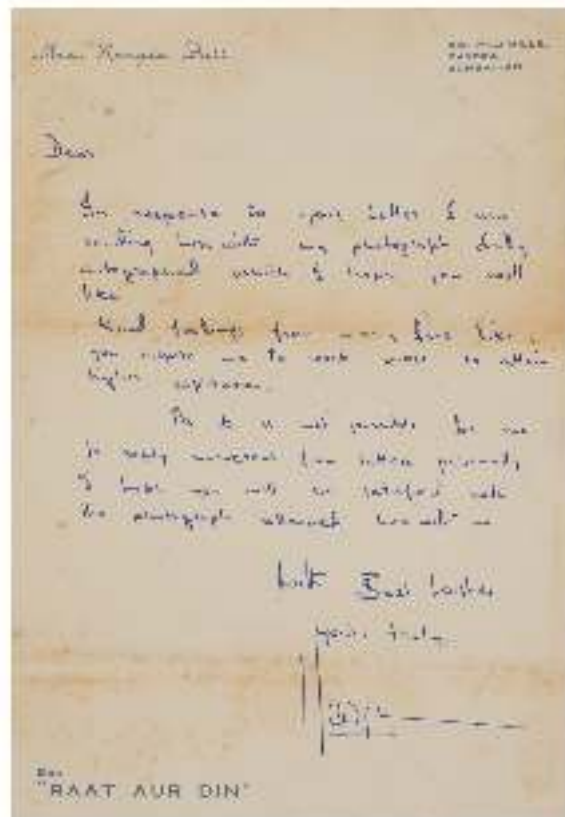 Mrs. Nargis Dutt
BOMBAY-50
Dear
In response to your letter I am
sending herewith my photograph duly
autographed which I hope you will
like.
Kind feelings from many fans like
you inspire me to work more to attain
higher
It is not possible for me
to reply numerous fan letters personally
I hope you will be satisfied with
the photograph attached herewith
with Best wishes
yours truly
"RAAT AUR DIN"